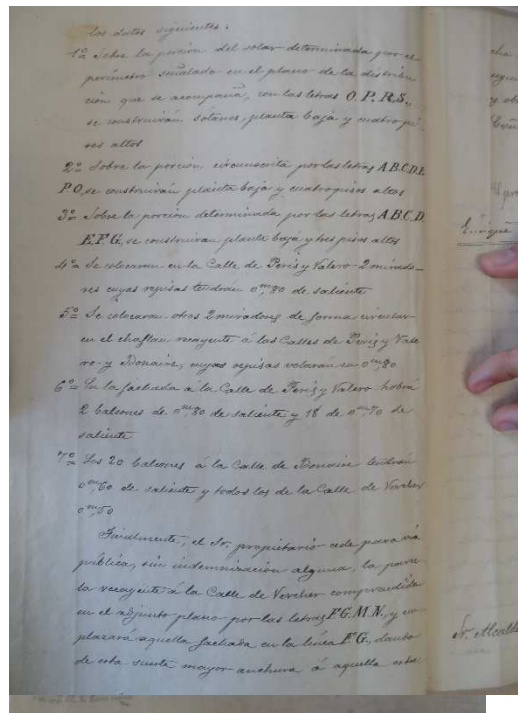 los datos siguientes:
1º Sobre la porción del solar determinada por el
perímetro señalado en el plano de la distribu
ción que se acompaña, con las letras O. P. R. S.,
se construirán sótanos, planta baja y cuatro pi-
sos altos
2º Sobre la porción circunscrita por las letras A.B.C.D.E
P O, se construirán planta baja y cuatro pisos altos
3º Sobre la porción determinada por las letras A.B.C.D.
E.F.G., se construirán planta baja y tres pisos altos
4º Se colocarán en la Calle de Peris y Valero 2 mirado-
res cuyas repisas tendrán 0m,80 de saliente
5º Se colocarán otros 2 miradores de forma circular
en el chaflán recayente á las Calles de Peris y Vale
ro y Bonaire, cuyas repisas volarán 0m,80
6º En la fachada á la Calle de Peris y Valero habrá
2 balcones de 0m,80 de saliente y 18 de 0m,70 de
saliente
7º Los 20 balcones á la Calle de Bonaire tendrán
0m,60 de saliente y todos los de la Calle de Vercher
0m,50
Finalmente, el Sr. propietario cede para vía
pública, sin indemnización alguna, la parce
la recayente á la Calle de Vercher comprendida
en el adjunto plano por las letras F.G.M.N., y em
plazará aquella fachada en la línea F.G., dando
de esta suerte mayor anchura á aquella
Enrique
Sr. Alcalde